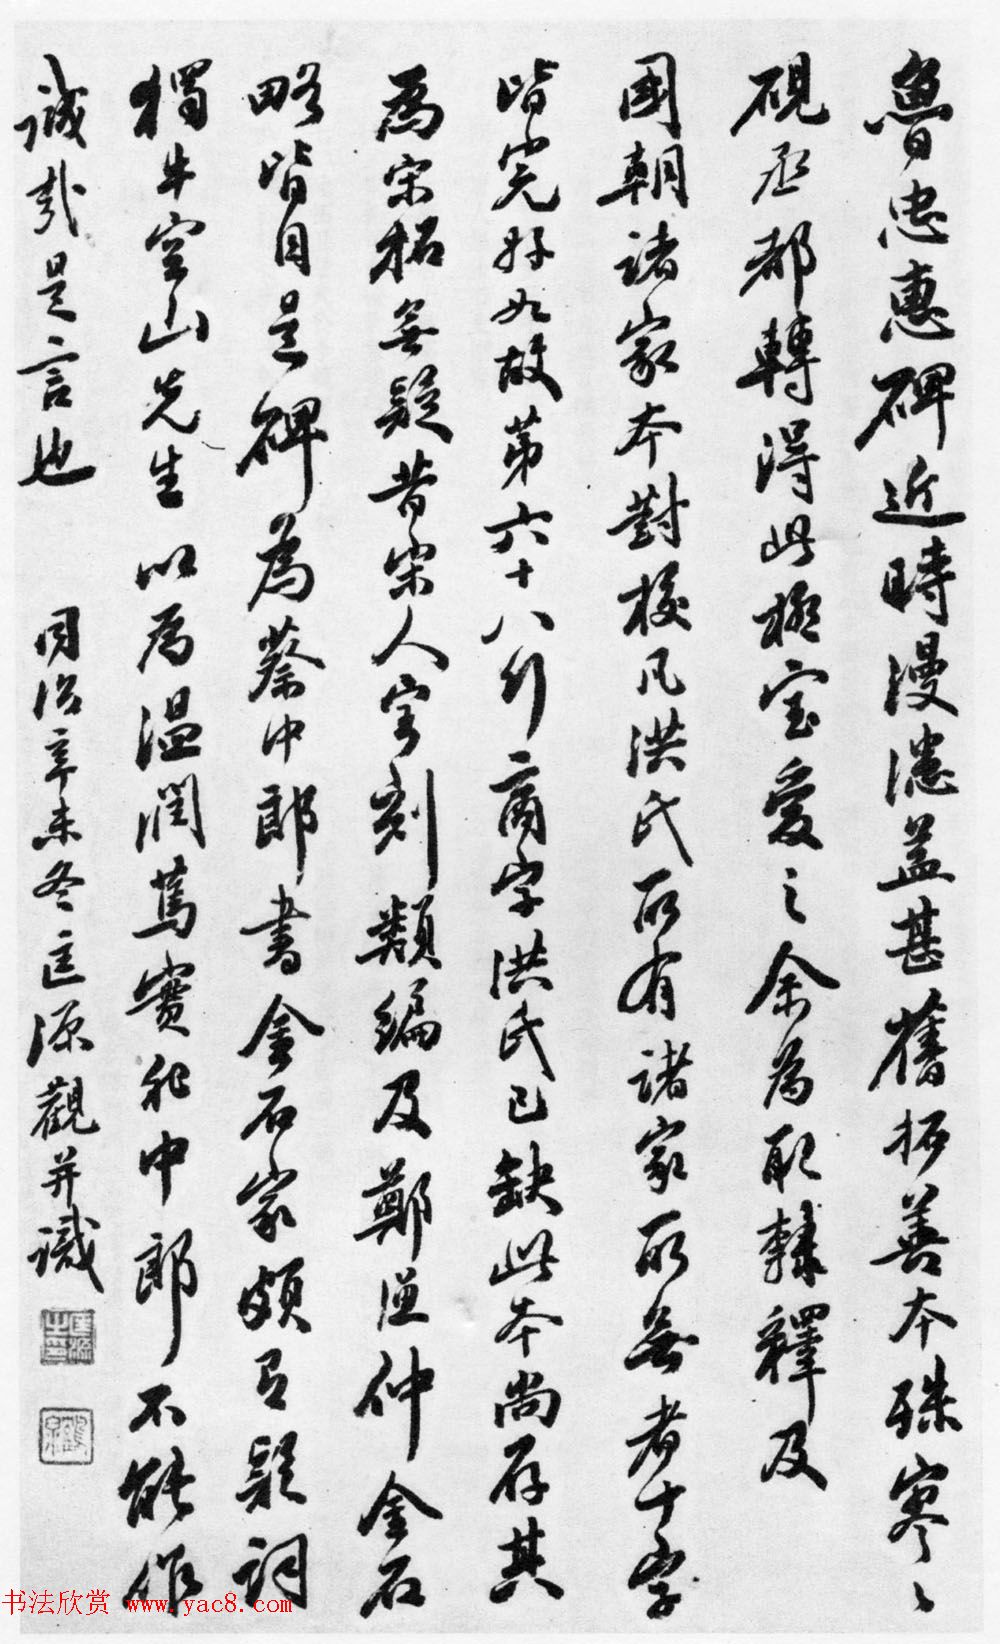 魯忠惠碑近時漫漶益甚舊拓善本殊寥〻
硯丞都轉得此極寶愛之余為取隸釋及
國朝諸家本對校凡洪氏所有諸家所無者十字
皆完好如故第六十八行商字洪氏已缺此本尚存其
為宋拓無疑昔宋人寶刻類編及鄭漁仲金石
略皆目是碑為蔡中郎書金石家頗有疑詞
獨牛空山先生以為溫潤篤實非中郎不能作
誠哉是言也 同治辛未冬匡源觀并識
匡源之印
書法欣賞 www.yac8.com